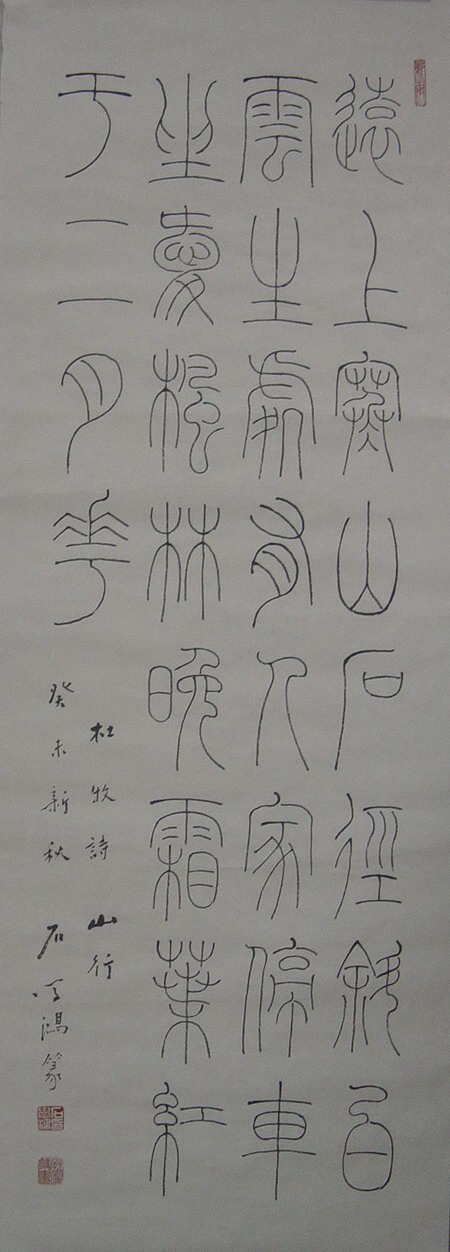 遠上寒山石徑斜白
雲生處有人家停車
坐愛楓林晚霜葉紅
于二月花
杜牧詩 山行
癸未新秋 石鴻篆